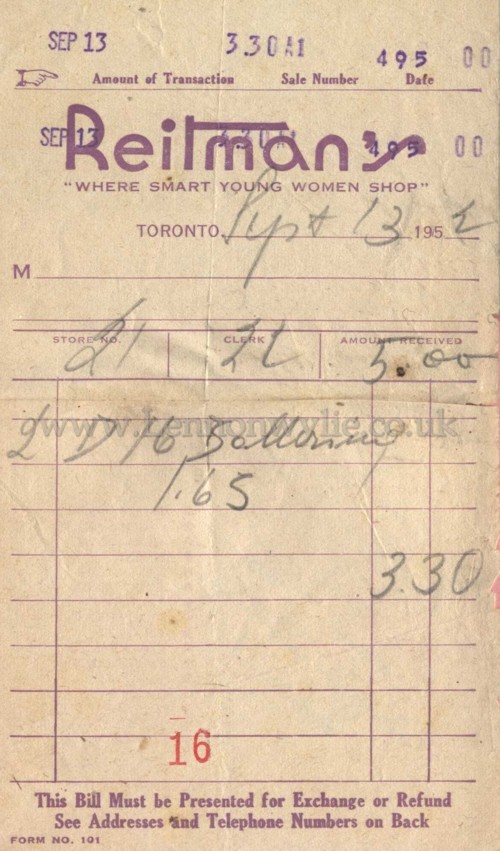 SEP 13 3.30 A1 495 00
Amount of Transaction Sale Number Date
SEP 13 3.30 A1 495 00
Reitman's
"WHERE SMART YOUNG WOMEN SHOP"
TORONTO Sept 13 1952
M
STORE NO. CLERK AMOUNT RECEIVED
21 22 5.00
www.lennonwylie.co.uk
2 D 16
1.65
3.30
16
This Bill Must be Presented for Exchange or Refund
See Addresses and Telephone Numbers on Back
FORM NO. 101